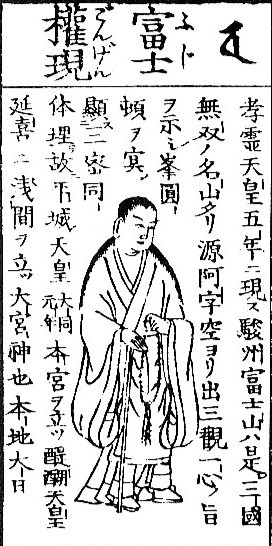 富士
ふじ
權現
ごんげん
孝霊天皇五年ニ現ス駿州富士山ハ是三國
無双ノ名山タリ源阿字空ヨリ出三觀一心ノ旨
ヲ示ス峯圓
頓ヲ
顯ス三密同
体理故平城天皇大同元年本宮ヲ立ツ醍醐天皇
延喜ニ浅間ヲ立ツ大宮神也本地大日